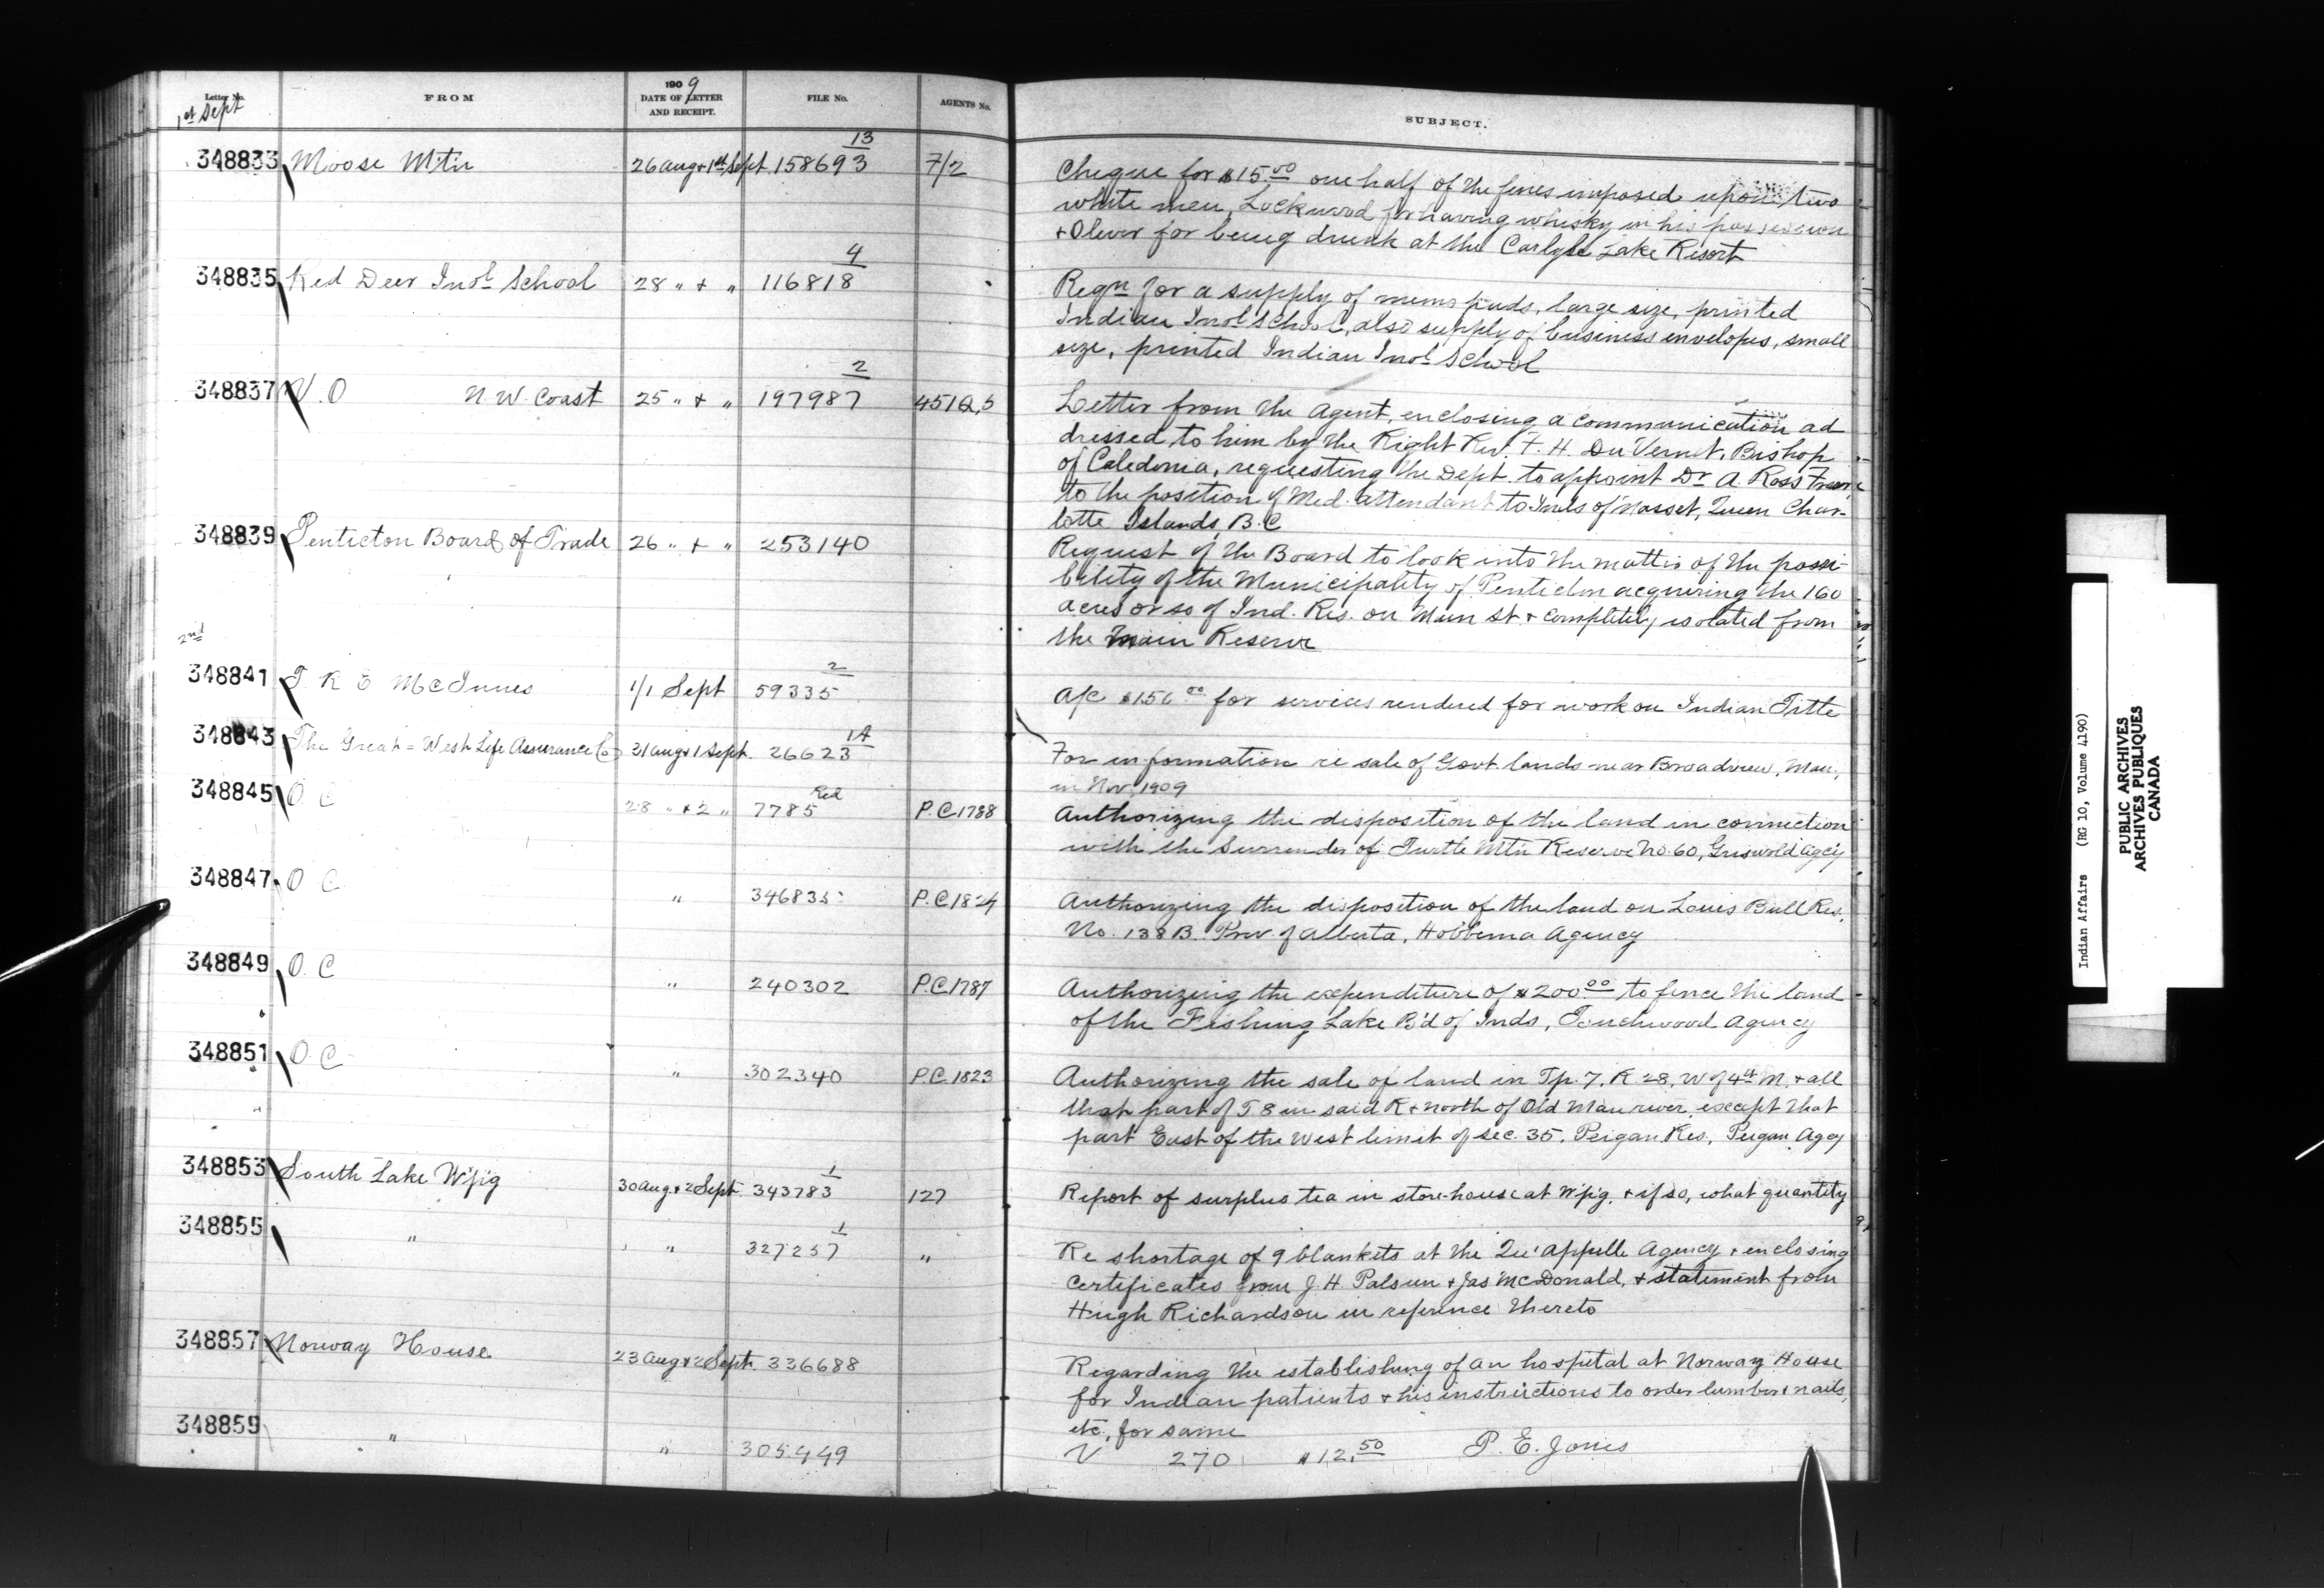 Letter No. FROM 1909 DATE OF LETTER AND RECEIPT. FILE No. AGENTS No. SUBJECT.
1st Sept
348833 Moose Mtn 26 Aug + 1st Sept 158693 13 7/2 Cheque for $15.00 one half of the fines imposed upon two
white men, Lockwood for having whisky in his possession
+ Oliver for being drunk at the Carlyle Lake Resort
348835 Red Deer Indl School 28 " + " 116818 4 Reqn for a supply of memo pads, large size, printed
Indian Indl School, also supply of business envelopes, small
size, printed Indian Indl School
348837 V.O N.W. Coast 25 " + " 197987 2 Letter from the Agent, enclosing a communication ad
dressed to him by the Right Rev. F. H. Du Vernet, Bishop
of Caledonia, requesting the Dept. to appoint Dr A. Ross
to the position of Med. attendant to Inds of Masset, Queen Char-
lotte Islands, B.C
348839 Penticton Board of Trade 26 " + " 253140 Request of the Board to look into the matter of the possi-
bility of the Municipality of Penticton acquiring the 160
acres or so of Ind. Res. on Main St. + completely isolated from
the Main Reserve
2nd
348841 T R E McInnes 1/1 Sept 59335 2 A/c $156.00 for services rendered for work on Indian Title
348843 The Great=West Life Assurance Co 31 Aug + 1 Sept. 26623 1A For information re sale of Govt lands near Broadview, Man.,
in Nov. 1909
348845 O.C 28 " + 2 " 7785 Red P.C.1788 Authorizing the disposition of the land in connection
with the Surrender of Turtle Mtn Reserve No. 60, Griswold Agcy
348847 O C " 346835 P.C.1824 Authorizing the disposition of the land on Louis Bull Res.
No. 138B. Prov. of Alberta, Hobbema Agency
348849 O.C " 240302 P.C.1787 Authorizing the expenditure of $200.00 to fence the land
of the Fishing Lake B'd of Inds, Touchwood Agency
348851 O.C " 302340 P.C.1823 Authorizing the sale of land in Tp. 7, R 28, W of 4th M. + all
that part of T 8 in said R + north of Old Man river, except that
part East of the West limit of sec. 35, Peigan Res., Peigan Agcy
348853 South Lake W'p'g 30 Aug + 2 Sept. 343783 1 127 Report of surplus tea in store-house at W'p'g. + if so, what quantity
348855 " " 327257 1 " Re shortage of 9 blankets at the Qu'Appelle Agency + enclosing
certificates from J. H. Palsun + Jas McDonald, + statement from
Hugh Richardson in reference thereto
348857 Norway House 23 Aug + 2 Sept. 336688 Regarding the establishing of an hospital at Norway House
for Indian patients + his instructions to order lumber + nails,
etc, for same
348859 " " 305449 V 270 $12.50 P. E. Jones
Indian Affairs (RG 10, Volume 4190)
PUBLIC ARCHIVES
ARCHIVES PUBLIQUES
CANADA